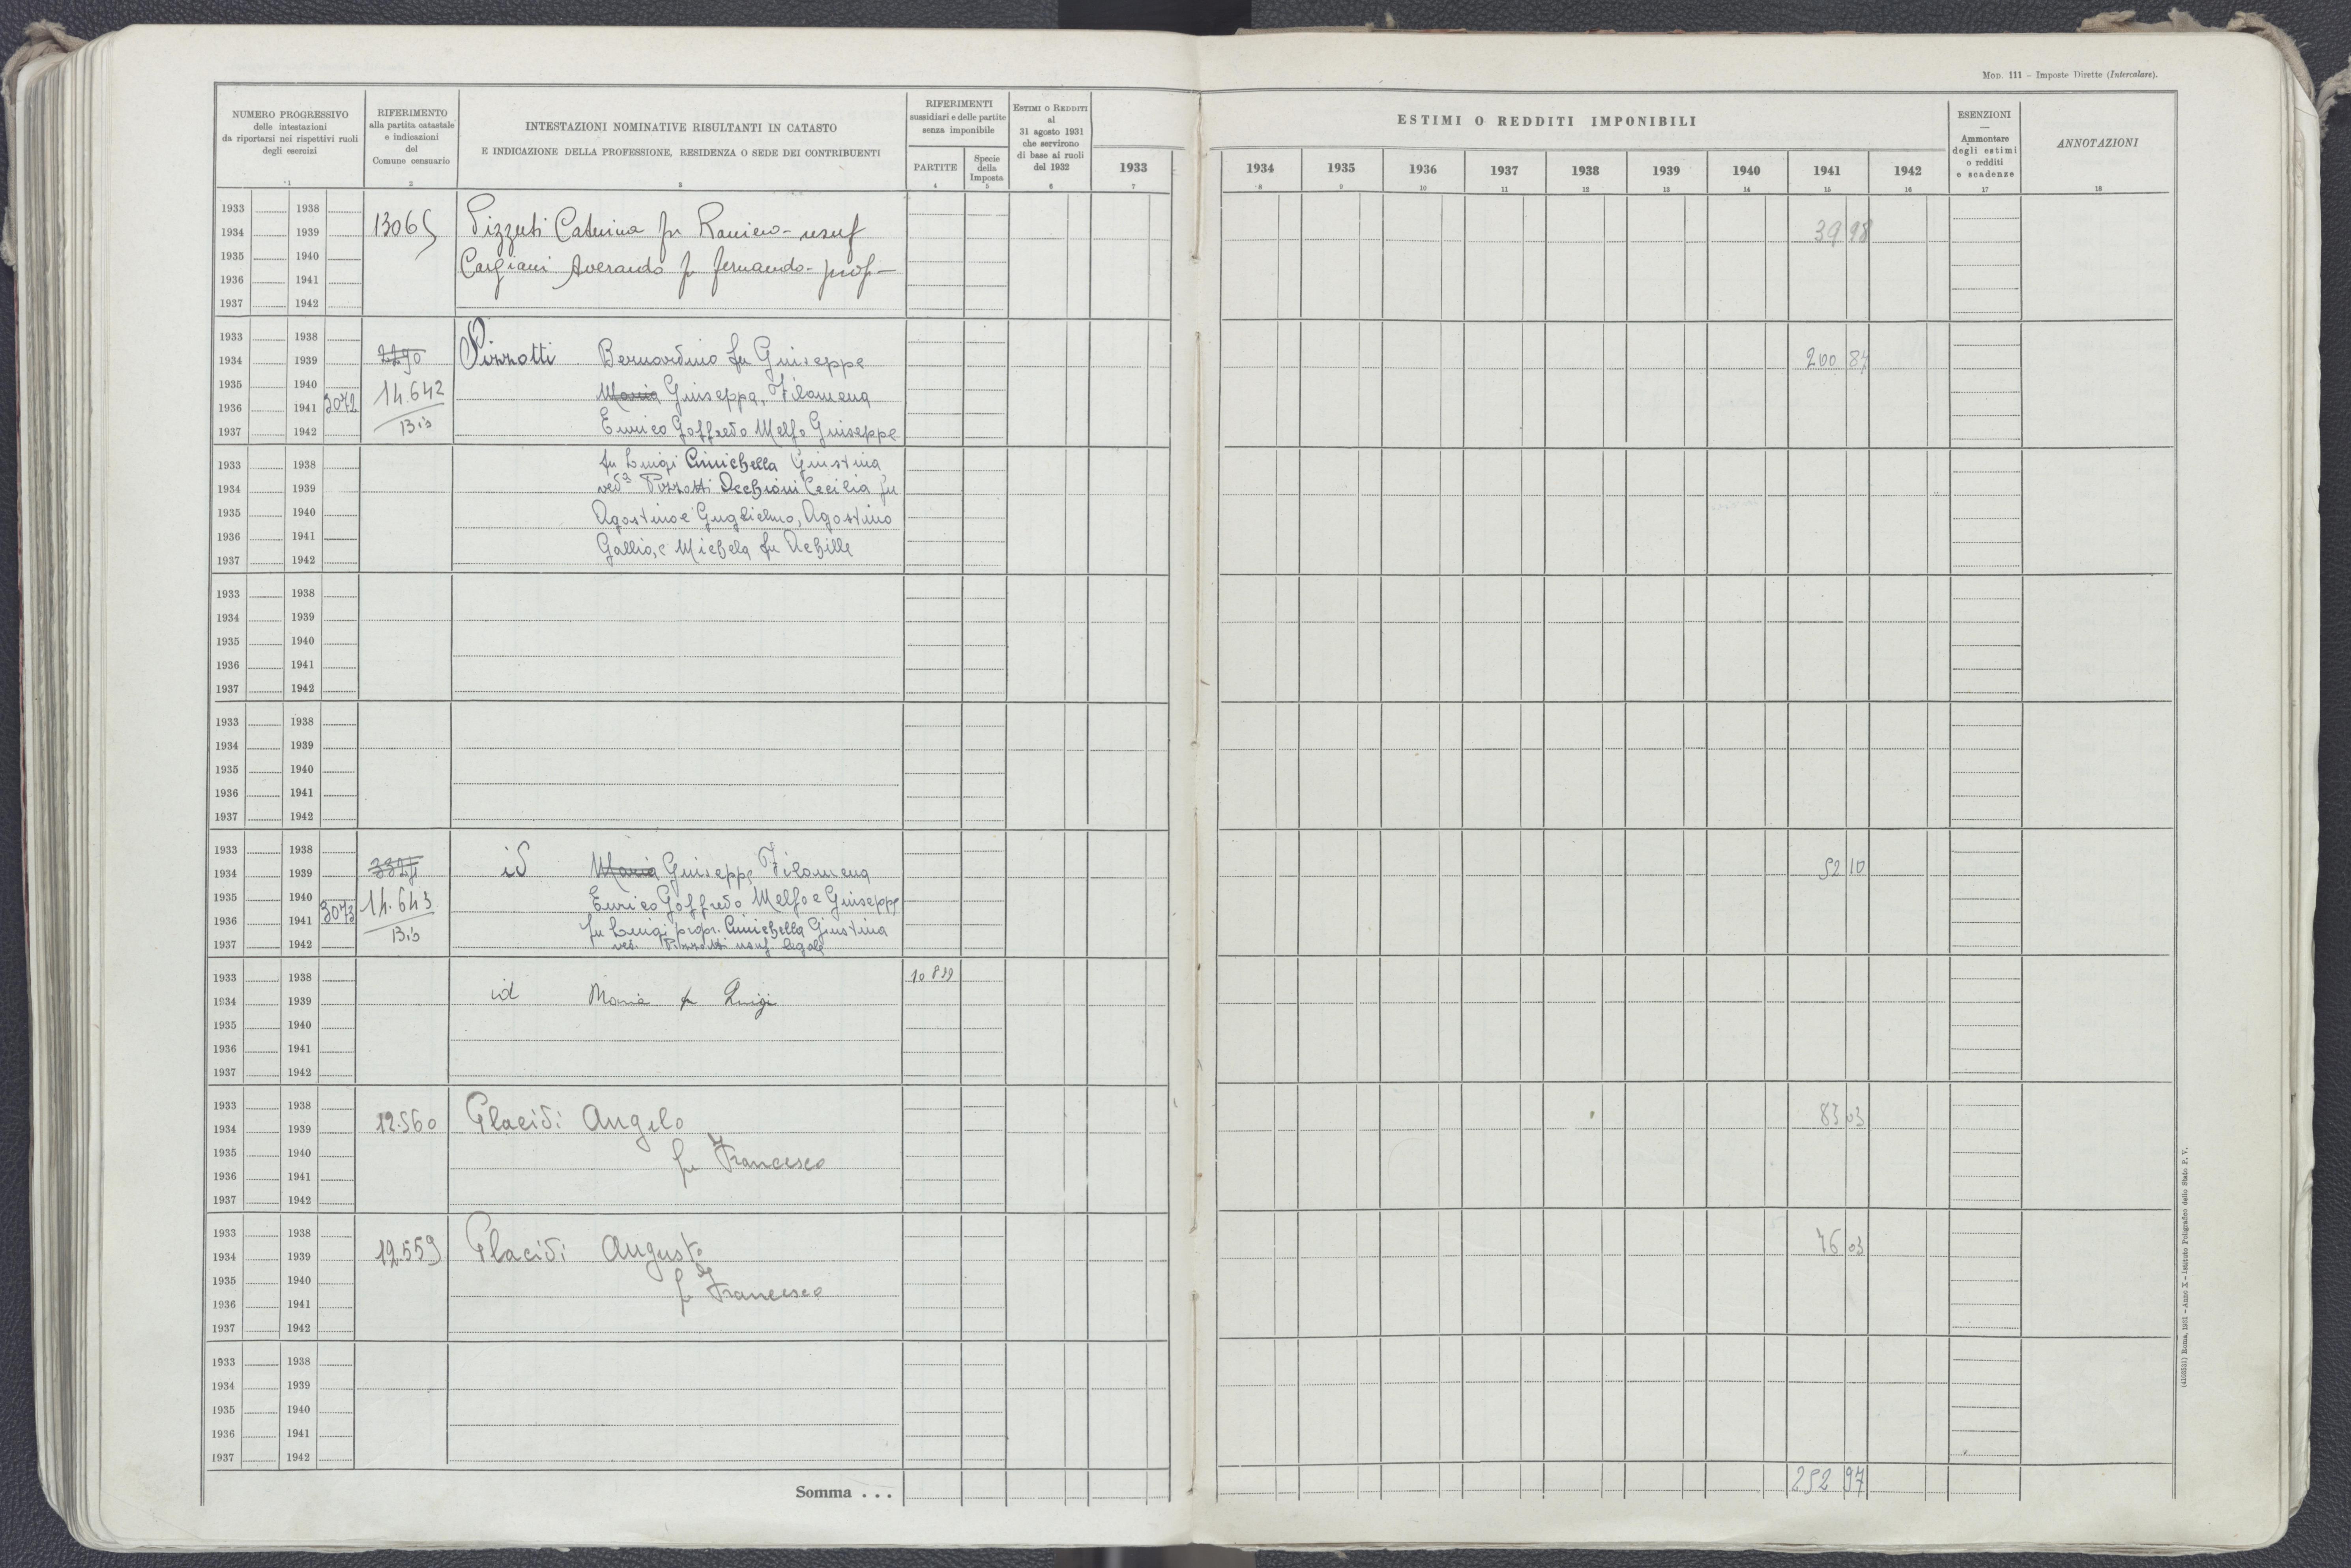 MOD. 111 – Imposte Dirette (Intercalare).
NUMERO PROGRESSIVO
delle intestazioni
da riportarsi nei rispettivi ruoli
degli esercizi
1
RIFERIMENTO
alla partita catastale
e indicazioni
del
Comune censuario
2
INTESTAZIONI NOMINATIVE RISULTANTI IN CATASTO
E INDICAZIONE DELLA PROFESSIONE, RESIDENZA O SEDE DEI CONTRIBUENTI
3
RIFERIMENTI
sussidiari e delle partite
senza imponibile
PARTITE
4
Specie
della
Imposta
5
ESTIMI O REDDITI
al
31 agosto 1931
che servirono
di base ai ruoli
del 1932
6
1933
7
ESTIMI O REDDITI IMPONIBILI
1934 1935 1936 1937 1938 1939 1940 1941 1942
8 9 10 11 12 13 14 15 16
ESENZIONI
—
Ammontare
degli estimi
o redditi
e scadenze
17
ANNOTAZIONI
18
1933 1938
1934 1939 13065 Pizzuti Caterina fu Raniero - usuf 39 98
1935 1940
1936 1941 Averando fu Fernando - prop -
1937 1942
1933 1938
1934 1939 Pizzotti Bernardino fu Giuseppe 200 84
1935 1940 14.642 Maria Giuseppa, Filomena
1936 1941 3072
1937 1942 Bis Enrico Goffredo Melfo Giuseppe
1933 1938 fu Luigi Cinichella Giustina
1934 1939 ved. Pizzotti Occhioni Cecilia fu
1935 1940 Agostino e Guglielmo, Agostino
1936 1941
1937 1942 Gallio, e Michela fu Achille
1933 1938
1934 1939
1935 1940
1936 1941
1937 1942
1933 1938
1934 1939
1935 1940
1936 1941
1937 1942
1933 1938
1934 1939 id Maria Giuseppa Filomena 52 10
1935 1940 14.643 Enrico Goffredo Melfo e Giuseppe
1936 1941 3073 fu Luigi propr. Cinichella Giustina
1937 1942 Bis ved. Pizzotti usuf. legale
1933 1938 10839
1934 1939 id Maria fu Luigi
1935 1940
1936 1941
1937 1942
1933 1938
1934 1939 12.560 Placidi Angelo 83 03
1935 1940 fu Francesco
1936 1941
1937 1942
1933 1938
1934 1939 12.559 Placidi Augusto 03
1935 1940
1936 1941 fu Francesco
1937 1942
1933 1938
1934 1939
1935 1940
1936 1941
1937 1942
Somma . . . 252 97
Roma, 1931 – Anno X – Istituto Poligrafico dello Stato P. V.